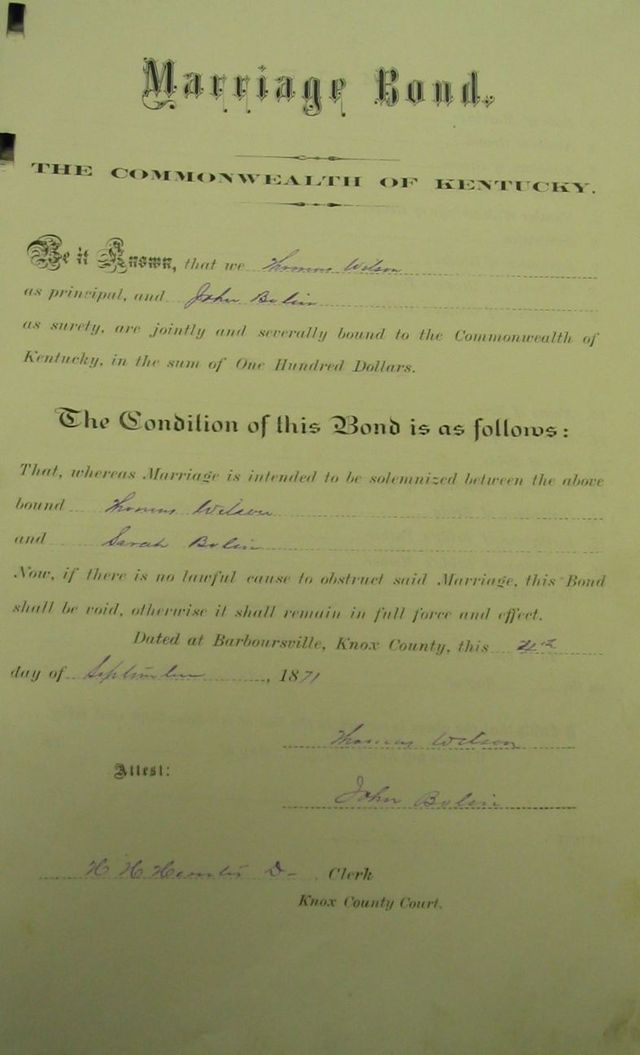 Marriage Bond.
THE COMMONWEALTH OF KENTUCKY.
Be it Known, that we Thomas Wilson
as principal, and John Bolin
as surety, are jointly and severally bound to the Commonwealth of
Kentucky, in the sum of One Hundred Dollars.
The Condition of this Bond is as follows:
That, whereas Marriage is intended to be solemnized between the above
bound Thomas Wilson
and Sarah Bolin
Now, if there is no lawful cause to obstruct said Marriage, this Bond
shall be void, otherwise it shall remain in full force and effect.
Dated at Barboursville, Knox County, this 4th
day of September, 1871
Thomas Wilson
Attest:
John Bolin
H H D- Clerk
Knox County Court.